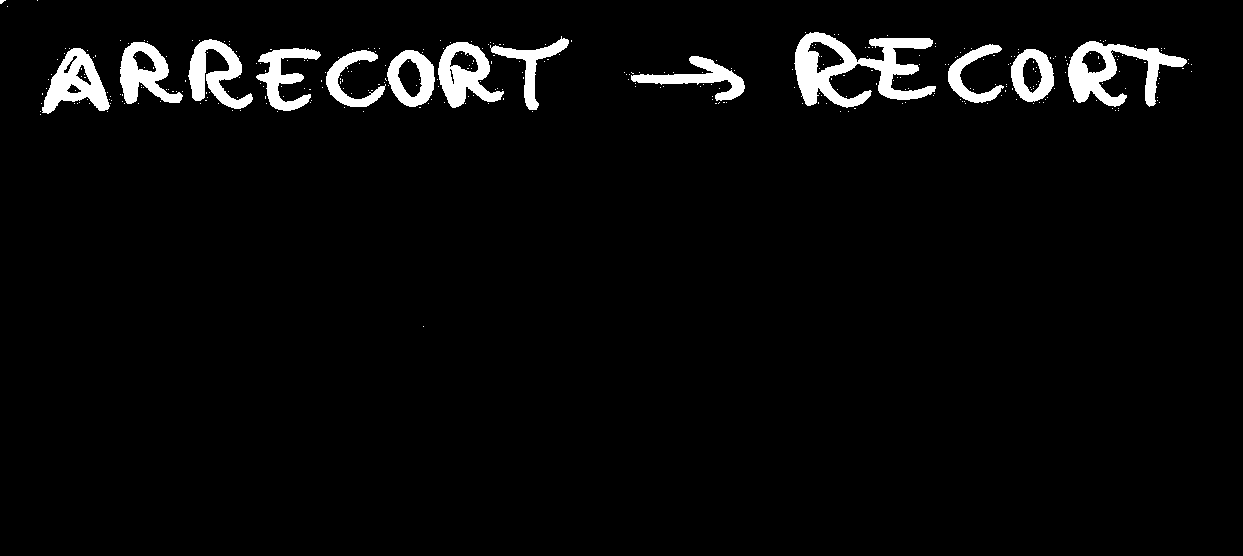 ARRECORT → RECORT